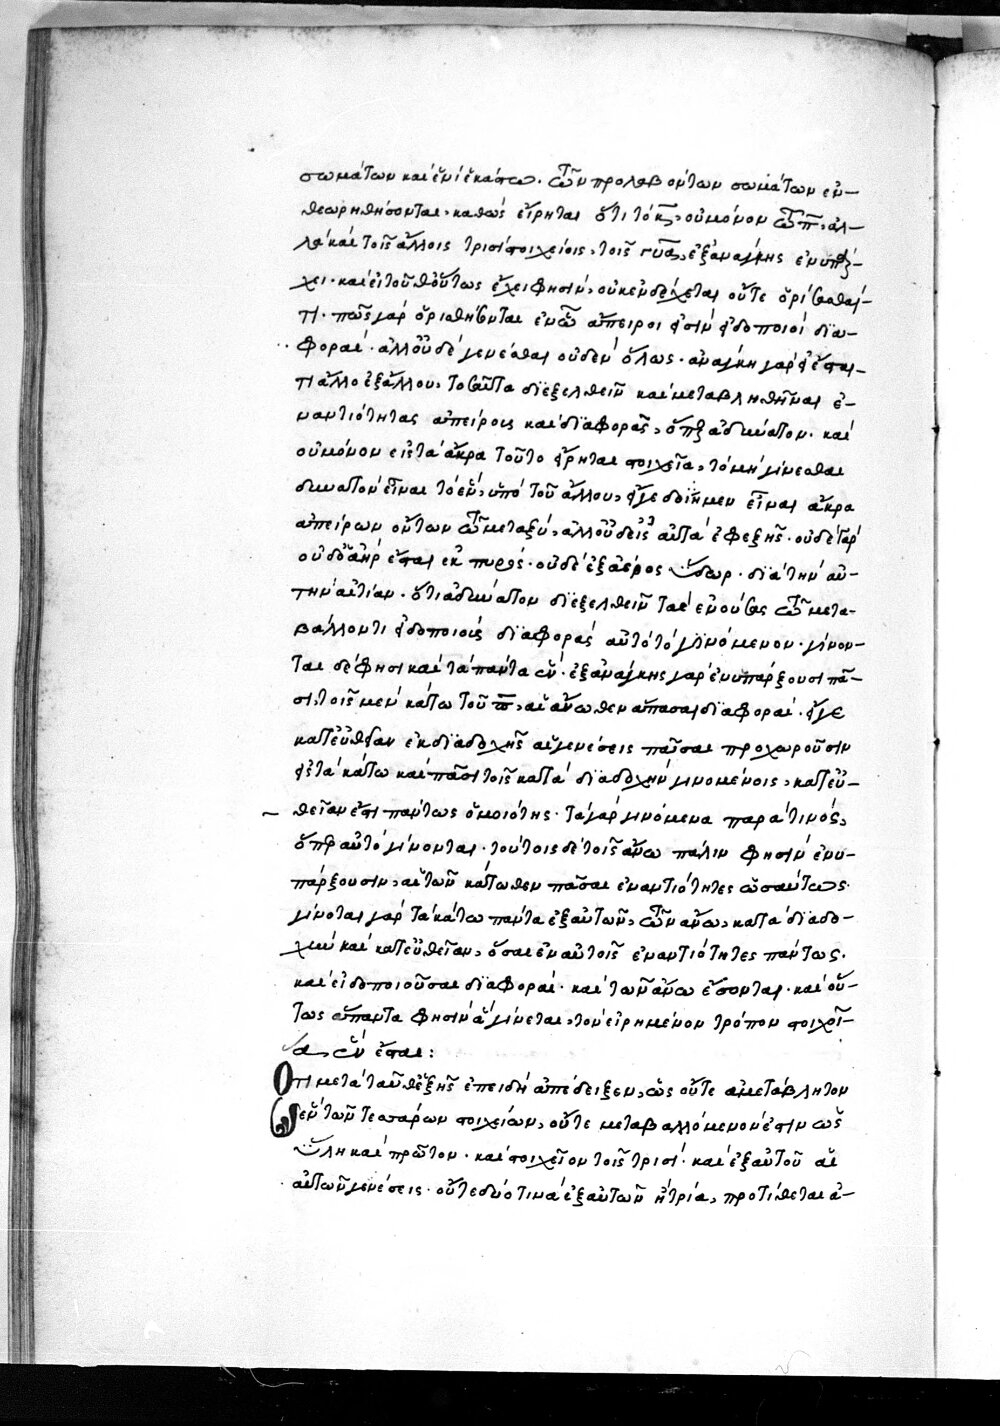 σωμάτων καὶ ἑνὶ ἑκάστω. τῶν προλαβόντων σωμάτων ἐν-
θεωρηθήσονται, καθὼς εἴρηται ὅτι τὸ κ, οὐ μόνον τῶ π, ἀλ-
λὰ καὶ τοῖς ἄλλοις τρισὶ στοιχείοις, τοῖς ἐξανάγκης ἐνυπάρ-
χει. καὶ εἰ τοῦθ' οὕτως ἔχει φησὶν, οὐκ ἐνδέχεται οὔτε ὁρίσασθαί
τι. πῶς γὰρ ὁρισθήσονται ἐν ὧ ἄπειροι εἰσὶν εἰδοποιοὶ δια-
φοραί. ἀλλ' οὐδὲ γενέσθαι οὐδὲν ὅλως. ἀνάγκη γὰρ εἰ ἔσται
τι ἄλλο ἐξ ἄλλου, τοσαῦτα διεξελθεῖν καὶ μεταβληθῆναι ἐ-
ναντιότητας ἀπείρους καὶ διαφορὰς, ὅπερ ἀδύνατον. καὶ
οὐ μόνον εἰς τὰ ἄκρα τοῦτο εἴρηται στοιχεῖα, τὸ μὴ γίνεσθαι
δυνατὸν εἶναι τὸ ἓν, ὑπὸ τοῦ ἄλλου, εἴγε δοίημεν εἶναι ἄκρα
ἀπείρων ὄντων τῶν μεταξὺ, ἀλλ' οὐδ' εἰς αὐτὰ ἐφεξῆς. οὐδὲ γὰρ
οὐδ' ἀὴρ ἔσται ἐκ πυρός. οὐδὲ ἐξ ἀέρος ὕδωρ. διὰ τὴν αὐ-
τὴν αἰτίαν. ὅτι ἀδύνατον διεξελθεῖν τὰς ἐνούσας τῶ μετα-
βάλλοντι εἰδοποιοὺς διαφορὰς αὐτὸ τὸ γινόμενον. γίνον-
ται δὲ φησι καὶ τὰ πάντα ἕν. ἐξανάγκης γὰρ ἐνυπάρξουσι πᾶ-
σι, τοῖς μὲν κάτω τοῦ π, αἱ ἄνωθεν ἅπασαι διαφοραί. εἴγε
κατευθεῖαν ἐκ διαδοχῆς αἱ γενέσεις πᾶσαι προχωροῦσιν
εἰς τὰ κάτω καὶ πᾶσι τοῖς κατὰ διαδοχὴν γινομένοις, κατευ-
θεῖαν ἐστὶ πάντως ὁμοιότης. τὰ γὰρ γινόμενα παρά τινός,
ὅπερ αὐτὸ γίνονται. τούτοις δὲ τοῖς ἄνω πάλιν φησὶν ἐνυ-
πάρξουσιν, αἱ τῶν κάτωθεν πᾶσαι ἐναντιότητες ὡσαύτως.
γίνεται γὰρ τὰ κάτω πάντα ἐξ αὐτῶν, τῶν ἄνω, κατὰ διαδο-
χὴν καὶ κατευθεῖαν, ὅσαι ἐν αὐτοῖς ἐναντιότητες πάντως.
καὶ εἰδοποιοῦσαι διαφοραί. καὶ τῶν ἄνω ἔσονται. καὶ οὕ-
τως ἅπαντα φησὶν ἃ γίνεται, τὸν εἰρημένον τρόπον στοιχεῖ-
α, ἓν ἔσται:
Ὅτι μετὰ ταῦθ' ἑξῆς ἐπειδὴ ἀπέδειξεν, ὡς οὔτε ἀμετάβλητον
ἓν τῶν τεσσάρων στοιχείων, οὔτε μεταβαλλόμενόν ἐστιν ὡς
ὕλη καὶ πρῶτον. καὶ στοιχεῖον τοῖς τρισί. καὶ ἐξ αὐτοῦ αἱ
αὐτῶν γενέσεις. οὔτε δύο τινὰ ἐξ αὐτῶν ἢ τρία, προτίθεται ἀ-